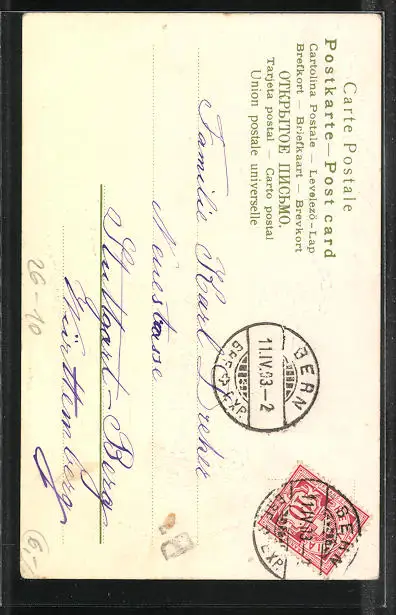 Carte Postale
Postkarte — Post card
Cartolina Postale — Levelező-Lap
Brefkort — Briefkaart — Brevkort
ОТКРЫТОЕ ПИСЬМО.
Tarjeta postal — Carto postal
Union postale universelle
Familie Karl Dreher
Neuestrasse
Stuttgart-Berg
Württemberg
BERN
11.IV.03-2
EXP.
BERN
EXP.
26-10
6,-